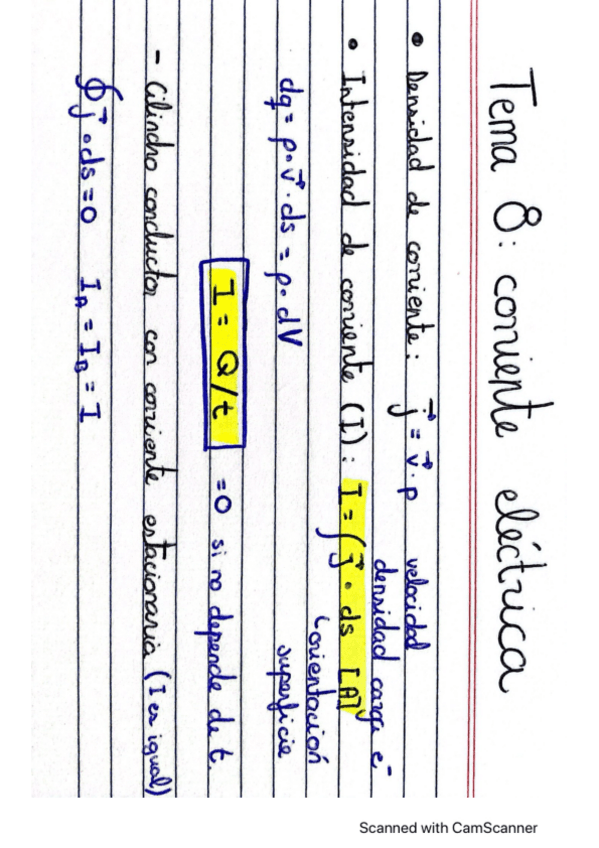 Tema 8: corriente eléctrica
• Densidad de corriente: j⃗ = v⃗ · ρ velocidad
densidad carga e⁻
• Intensidad de corriente (I): I = ∫ j⃗ · ds [A]
orientación
superficie
dq = ρ · v⃗ · ds = ρ · dV
I = Q/t = 0 si no depende de t.
- Cilindro conductor con corriente estacionaria (I es igual)
∮ j⃗ · ds = 0 I_A = I_B = I
Scanned with CamScanner